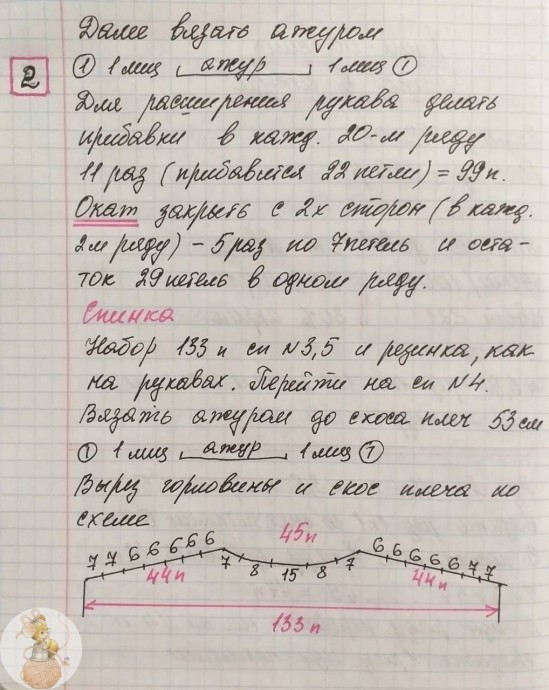 Далее вязать ажуром
2
① 1 лиц ажур 1 лиц ①
Для расширения рукава делать
прибавки в кажд. 20-м ряду
11 раз (прибавится 22 петли) = 99п.
Окат закрыть с 2х сторон (в кажд.
2м ряду) - 5 раз по 7 петель и оста-
ток 29 петель в одном ряду.
Спинка
Набор 133 п сп N3,5 и резинка, как
на рукавах. Перейти на сп N4.
Вязать ажуром до скоса плеч 53 см
① 1 лиц ажур 1 лиц ①
Вырез горловины и скос плеча по
схеме
45п
7 7 6 6 6 6 6 7 8 15 8 7 6 6 6 6 6 7 7
44п 44п
133 п